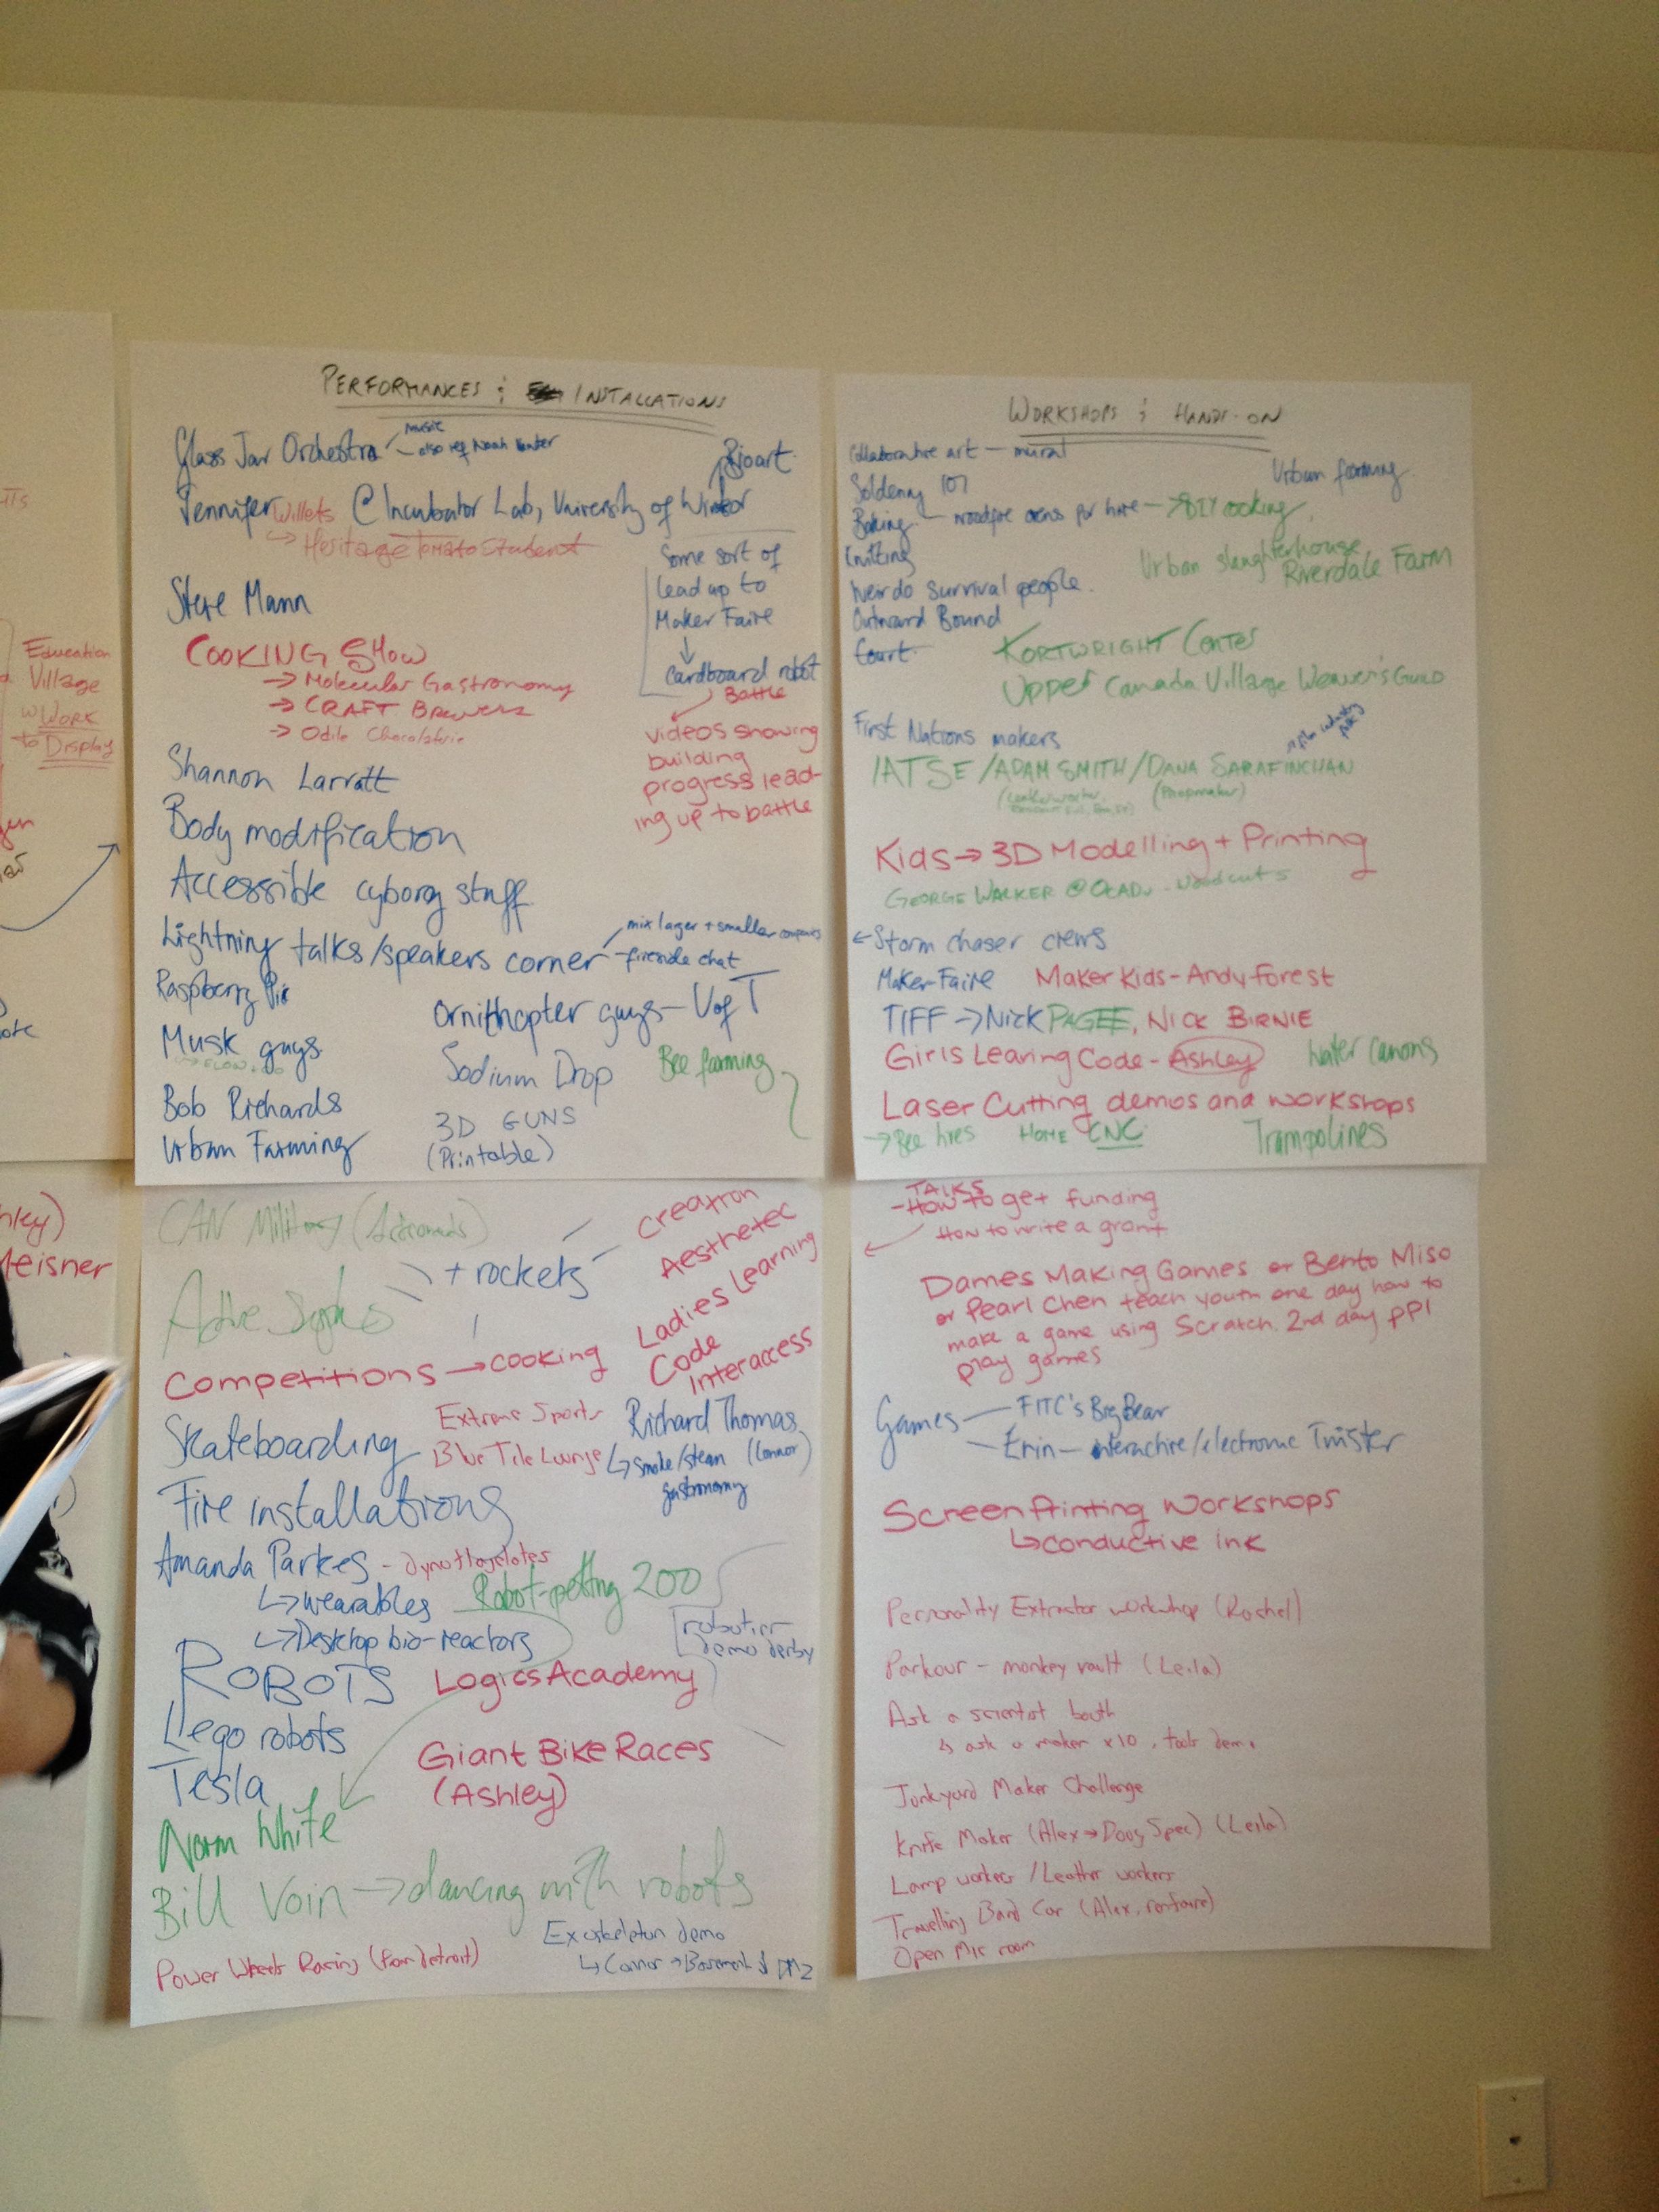 PERFORMANCES & INSTALLATIONS
Glass Jar Orchestra
music
also ref Noah
Bioart
Jennifer Willets @ Incubator Lab, University of Windsor
Heritage Tomato Student
Some sort of
lead up to
Maker Faire
cardboard robot
Battle
videos showing
building
progress lead-
ing up to battle
Steve Mann
COOKING SHOW
→ Molecular Gastronomy
→ CRAFT Brewers
→ Odile Chocolaterie
Shannon Larratt
Body modification
Accessible cyborg stuff
Lightning talks/speakers corner
mix larger + smaller companies
fireside chat
Raspberry Pie
Ornithopter guys - U of T
Musk guys
Sodium Drop
Bee farming
Bob Richards
3D GUNS
(Printable)
Urban Farming
WORKSHOPS & HANDS-ON
Collaborative art - mural
Urban farming
Soldering 101
Baking - woodfire ovens for hire → DIY cooking
Knitting
Urban slaughterhouse
Riverdale Farm
Weirdo survival people.
Outward Bound
Court
KORTWRIGHT Center
Upper Canada Village Weaver's Guild
First Nations makers
IATSE / ADAM SMITH / DANA SARAFINCHAN
(Propmaker)
Kids → 3D Modelling + Printing
GEORGE WALKER @ OCADU - Woodcuts
← Storm chaser crews
Maker-Faire Maker Kids - Andy Forest
TIFF → Nick PAGEE, NICK BIRNIE
Girls Learing Code - Ashley
Water Canons
Laser Cutting demos and workshops
→ Bee hives HOME CNC
Trampolines
CAN Military
+ rockets
Creatron
Aesthetec
Ladies Learning
Code
Interaccess
Competitions → cooking
Skateboarding
Extreme Sports
Blue Tile Lounge
Richard Thomas
↳ smoke/steam (Connor)
gastronomy
Fire installations
Amanda Parkes
↳ wearables
↳ Desktop bio-reactors
Robot-petting zoo
demo derby
ROBOTS
Logics Academy
Lego robots
Giant Bike Races
(Ashley)
Tesla
Norm White
Bill Vorn → dancing with robots
Exoskeleton demo
↳ Connor → Basement
Power Wheels Racing (from Detroit)
TALKS
- How to get funding
How to write a grant
Dames Making Games or Bento Miso
or Pearl Chen teach youth one day how to
make a game using Scratch. 2nd day ppl
play games
Games
FITC's BigBear
Erin - interactive/electronic Twister
Screen Printing Workshops
↳ conductive ink
Personality Extractor workshop (Rachel)
Parkour - monkey vault (Leila)
Ask a scientist booth
↳ ask a maker x10, tools demo
Junkyard Maker Challenge
Knife Maker (Alex → Doug Spec) (Leila)
Lamp workers / Leather workers
Travelling Band Car (Alex, renfaire)
Open Mic room
Education
Village
w Work
to Display